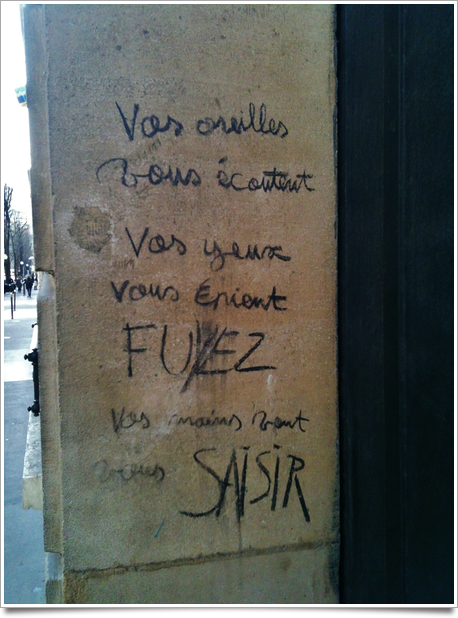 Vos oreilles
vous écoutent
Vos yeux
vous épient
FUYEZ
Vos mains vont
vous SAISIR